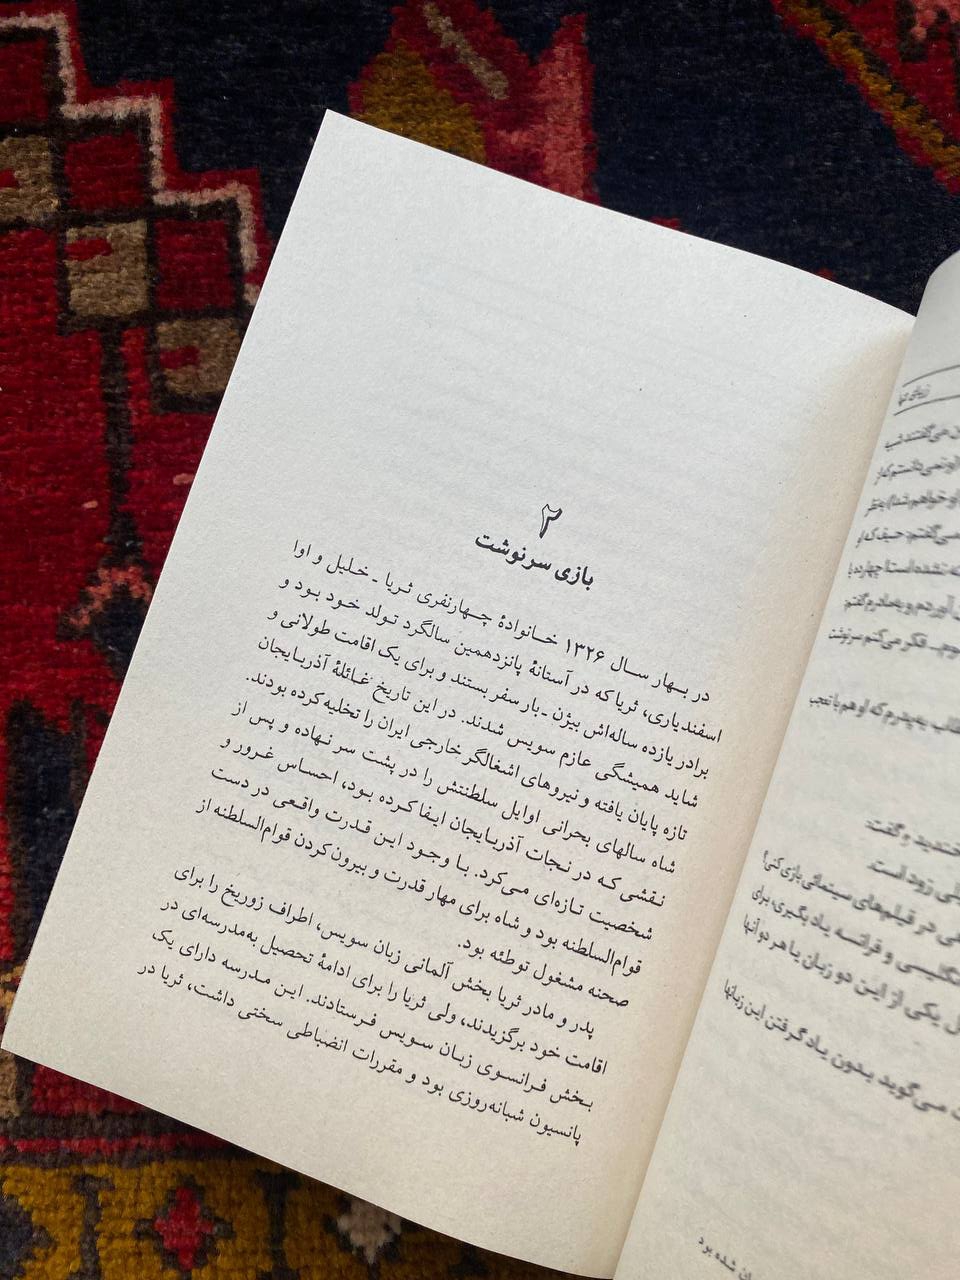 می‌گفتند شبیه
نمی‌دانستم که از
خواهم شد!) به‌نظر
می‌گفتم: حیف که او
نشده است! چهارده یا
آوردم و به مادرم گفتم:
فکر می‌کنم سرنوشت
به پدرم که او هم با تعجب
خندید و گفت:
زود است.
در فیلم‌های سینمائی بازی کنی!
انگلیسی و فرانسه یاد بگیری، برای
یکی از این دو زبان یا هر دو آنها
می‌گوید بدون یاد گرفتن این زبانها
شده بود
۲
بازی سرنوشت
در بهار سال ۱۳۲۶ خانوادهٔ چهارنفری ثریا ـ خلیل و اوا
اسفندیاری، ثریا که در آستانهٔ پانزدهمین سالگرد تولد خود بود و
برادر یازده ساله‌اش بیژن ـ بار سفر بستند و برای یک اقامت طولانی و
شاید همیشگی عازم سویس شدند. در این تاریخ غائلهٔ آذربایجان
تازه پایان یافته و نیروهای اشغالگر خارجی ایران را تخلیه کرده بودند.
شاه سالهای بحرانی اوایل سلطنتش را در پشت سر نهاده و پس از
نقشی که در نجات آذربایجان ایفا کرده بود، احساس غرور و
شخصیت تازه‌ای می‌کرد. با وجود این قدرت واقعی در دست
قوام‌السلطنه بود و شاه برای مهار قدرت و بیرون کردن قوام‌السلطنه از
صحنه مشغول توطئه بود.
پدر و مادر ثریا بخش آلمانی زبان سویس، اطراف زوریخ را برای
اقامت خود برگزیدند، ولی ثریا را برای ادامهٔ تحصیل به‌مدرسه‌ای در
بخش فرانسوی زبان سویس فرستادند. این مدرسه دارای یک
پانسیون شبانه‌روزی بود و مقررات انضباطی سختی داشت، ثریا در